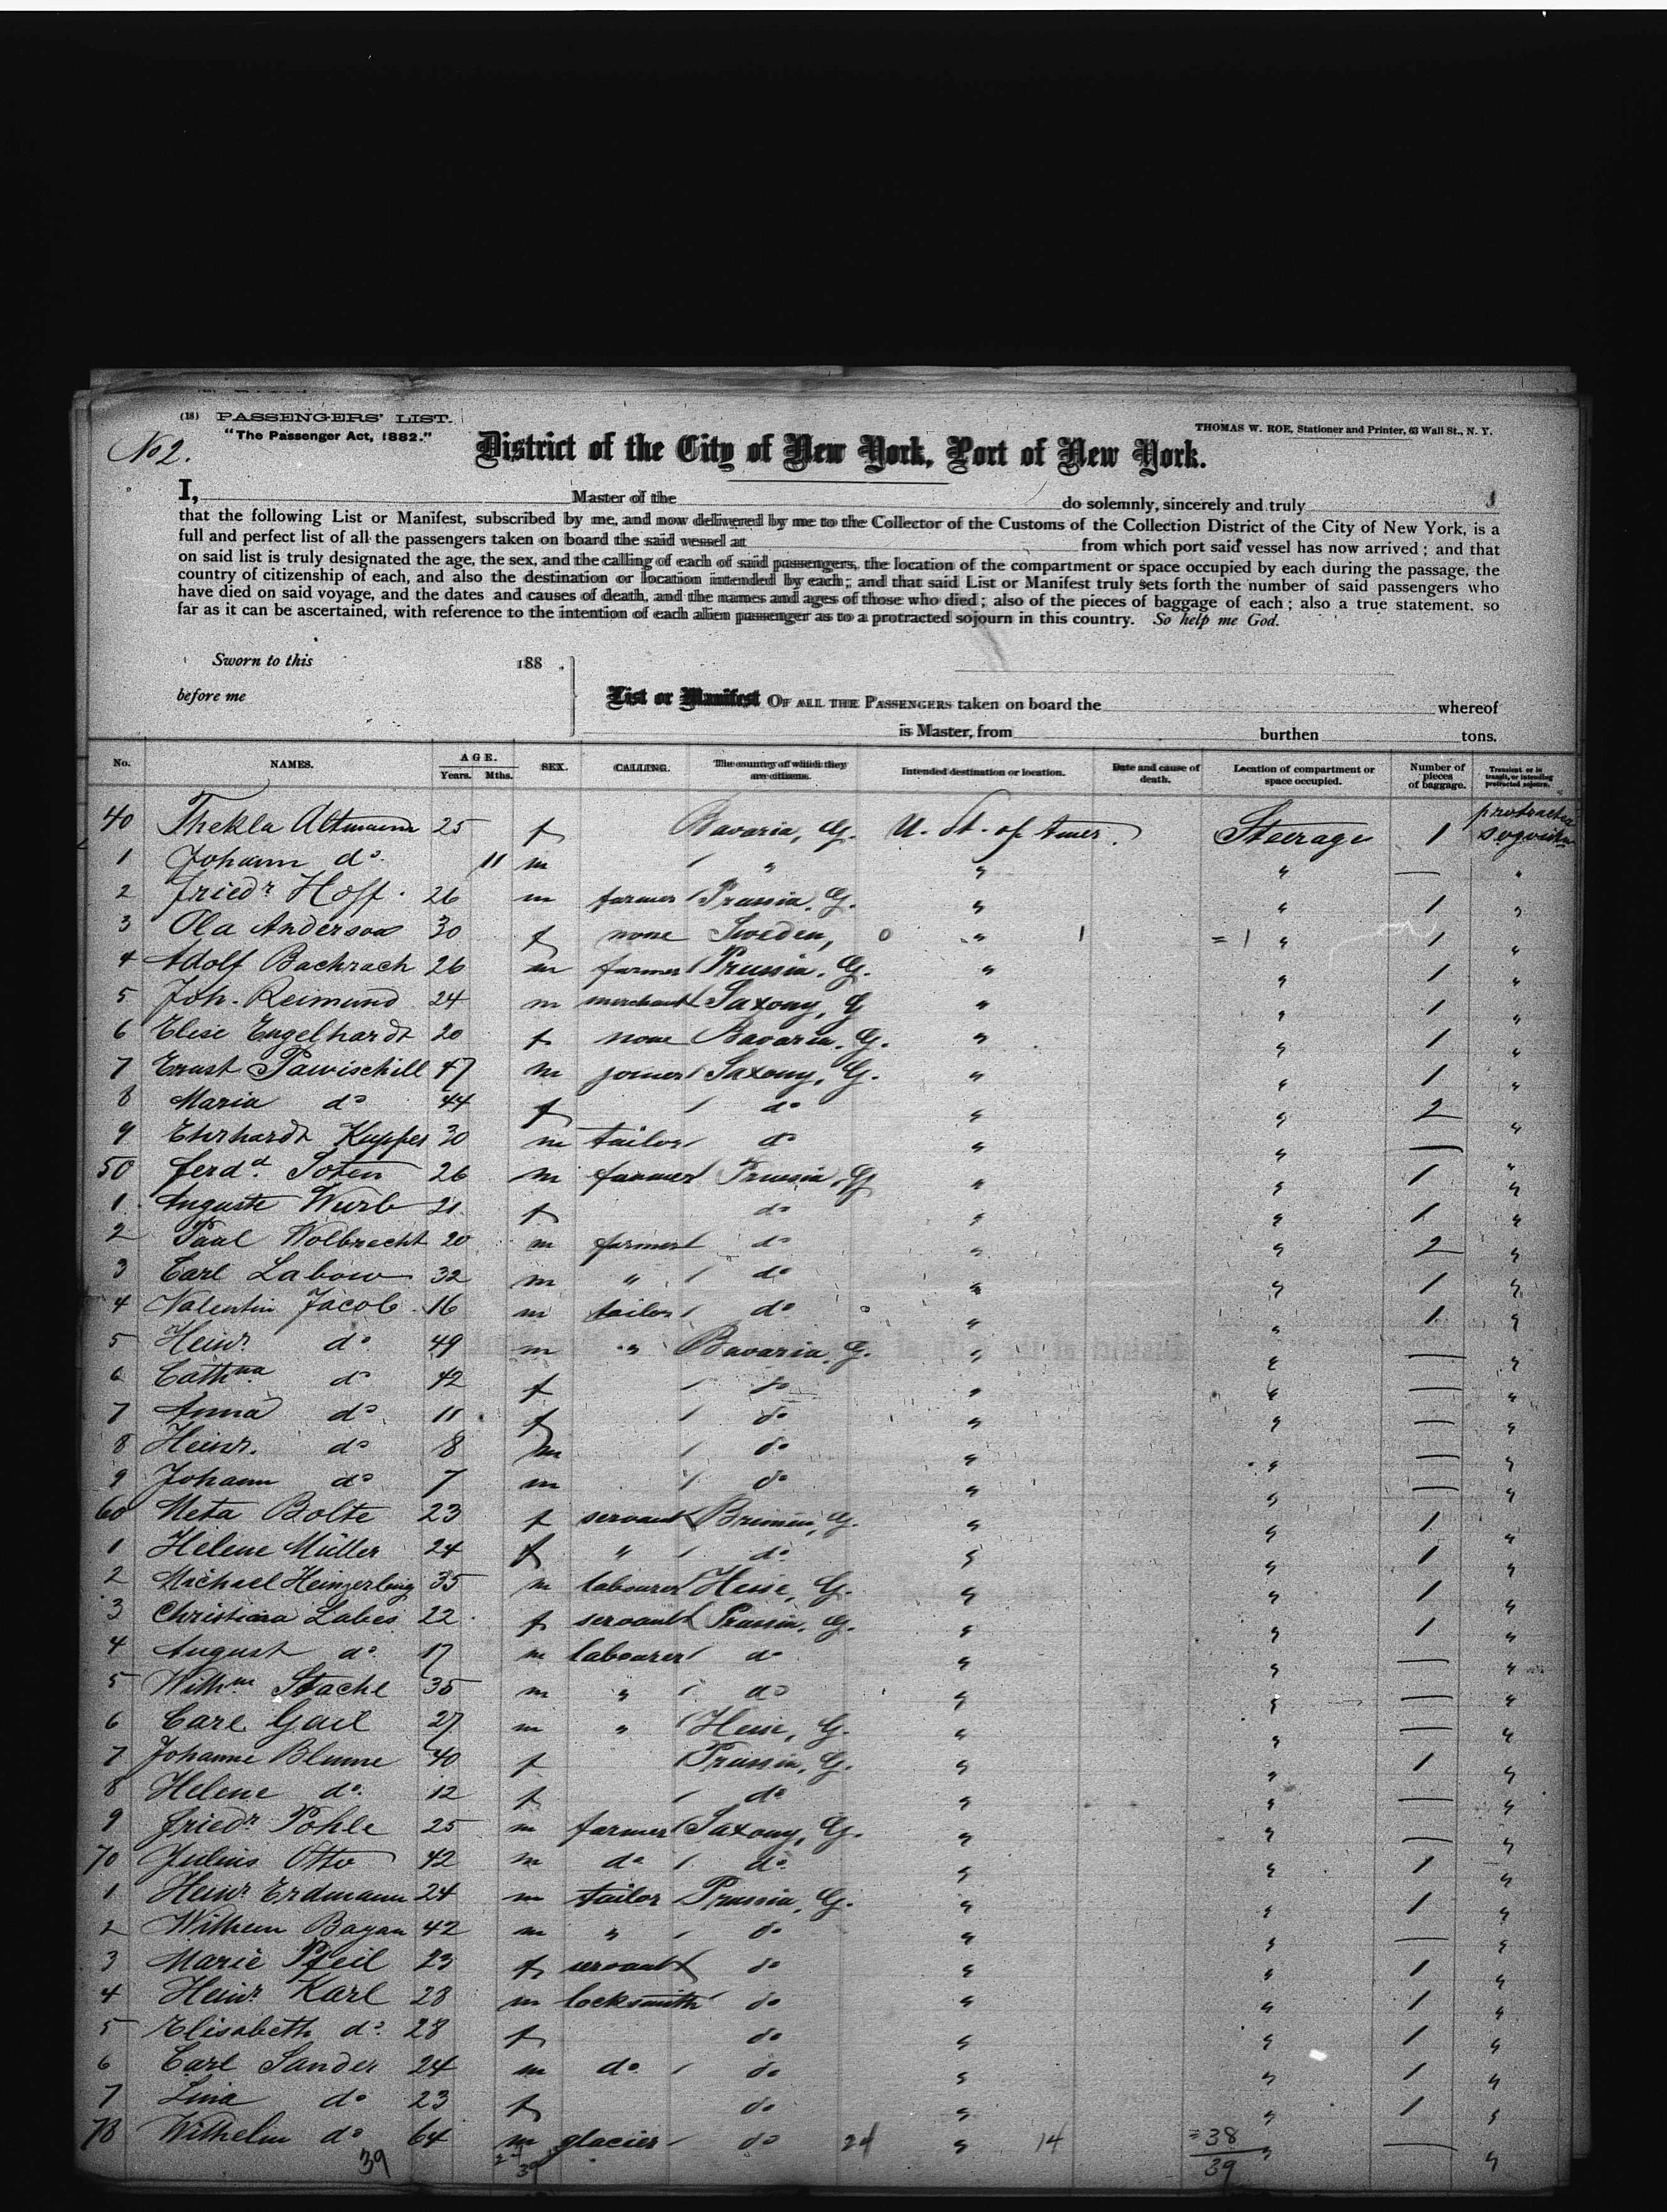 (18) PASSENGERS' LIST.
"The Passenger Act, 1882."
THOMAS W. ROE, Stationer and Printer, 63 Wall St., N. Y.
No 2.
District of the City of New York, Port of New York.
I, Master of the do solemnly, sincerely and truly
that the following List or Manifest, subscribed by me, and now delivered by me to the Collector of the Customs of the Collection District of the City of New York, is a
full and perfect list of all the passengers taken on board the said vessel at from which port said vessel has now arrived; and that
on said list is truly designated the age, the sex, and the calling of each of said passengers, the location of the compartment or space occupied by each during the passage, the
country of citizenship of each, and also the destination or location intended by each; and that said List or Manifest truly sets forth the number of said passengers who
have died on said voyage, and the dates and causes of death, and the names and ages of those who died; also of the pieces of baggage of each; also a true statement, so
far as it can be ascertained, with reference to the intention of each alien passenger as to a protracted sojourn in this country. So help me God.
Sworn to this 188 .
before me
List or Manifest OF ALL THE PASSENGERS taken on board the whereof
is Master, from burthen tons.
No. NAMES. AGE. Years. Mths. SEX. CALLING. The country of which they are citizens. Intended destination or location. Date and cause of death. Location of compartment or space occupied. Number of pieces of baggage. Transient or in transit, or intending protracted sojourn.
40 Thekla Altmann 25 f Bavaria, G. U. St. of Amer. Steerage 1
1 Johann do 11 m / " " " — "
2 Friedr Hoff 26 m farmer / Prussia, G. " " 1 "
3 Ola Anderson 30 f none Sweden, 0 " 1 = 1 " 1 "
4 Adolf Bachrach 26 m farmer / Prussia, G. " " 1 "
5 Joh. Reimund 24 m merchant / Saxony, G " " 1 "
6 Elise Engelhardt 20 f none Bavaria, G. " " 1 "
7 Ernst Pawischill 47 m joiner / Saxony, G. " " 1 "
8 Maria do 44 f / do " " 2 "
9 Ehrhardt Kupfer 30 m tailor / do " " — "
50 Ferdd. Soten 26 m farmer / Prussia, G " " 1 "
1 Auguste Wurb 21 f do " " 1 "
2 Paul Wolbrecht 20 m farmer / do " " 2 "
3 Carl Labow 32 m " / do " " 1 "
4 Valentin Jacob 16 m tailor / do " " 1 "
5 Heinr. do 49 m " Bavaria, G. " " — "
6 Cathna do 42 f / do " " — "
7 Anna do 11 f / do " " — "
8 Heinr. do 8 m / do " " — "
9 Johann do 7 m / do " " — "
60 Meta Bolte 23 f servant / Bremen, G. " " 1 "
1 Helene Müller 24 f " / do " " 1 "
2 Michael Heinzerling 35 m labourer / Hesse, G. " " 1 "
3 Christiana Labes 22 f servant / Prussia, G. " " 1 "
4 August do 17 m labourer / do " " — "
5 Wilhm Stache 35 m " / do " " — "
6 Carl Gail 27 m " / Hesse, G. " " — "
7 Johanne Blume 40 f Prussia, G. " " 1 "
8 Helene do 12 f / do " " — "
9 Friedr Pohle 25 m farmer / Saxony, G. " " — "
70 Julius Otto 42 m do / do " " 1 "
1 Heinr Erdmann 24 m tailor Prussia, G. " " 1 "
2 Wilhem Bagan 42 m " / do " " — "
3 Marie Pfeil 23 f servant / do " " 1 "
4 Heinr Karl 28 m locksmith / do " " 1 "
5 Elisabeth do 28 f do " " 1 "
6 Carl Sander 24 m do / do " " 1 "
7 Lina do 23 f do " " 1 "
78 Wilhelm do 64 m glacier / do 24 " 14 = 38 " — "
39 39 39